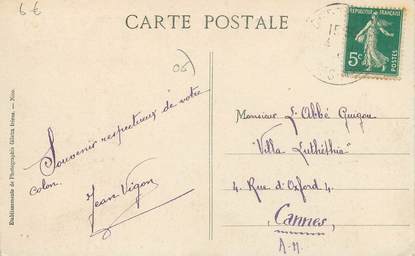 6 €
CARTE POSTALE
REPUBLIQUE FRANÇAISE
5c POSTES
06)
Souvenir respectueux de votre
colon.
Jean Vigon
Monsieur L'Abbé Guigou
"Villa Luthéthia"
4. Rue d'Oxford 4.
Cannes
A-M
Etablissements de Photographie Giletta frères. — Nice.